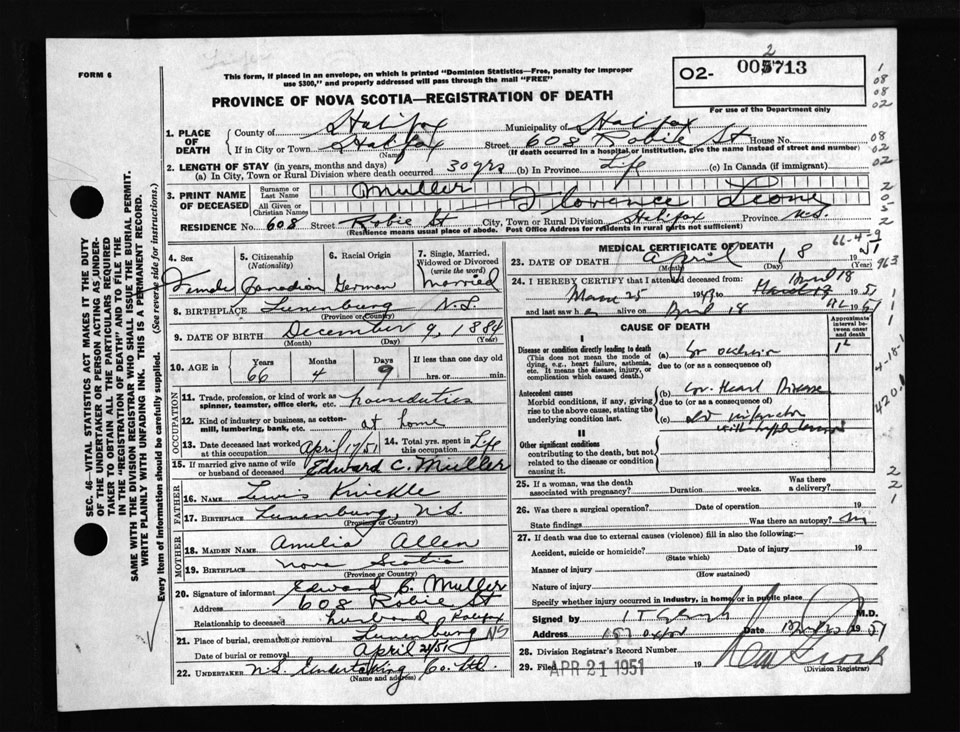 FORM 6
This form, if placed in an envelope, on which is printed "Dominion Statistics—Free, penalty for improper
use $300," and properly addressed will pass through the mail "FREE"
PROVINCE OF NOVA SCOTIA—REGISTRATION OF DEATH
O2- 005713
2
For use of the Department only
1
08
08
02
08
02
02
2
0
5
2
1. PLACE OF DEATH
County of Halifax Municipality of Halifax
If in City or Town Halifax (Name) Street 608 Robie St House No.
(If death occurred in a hospital or institution, give the name instead of street and number)
2. LENGTH OF STAY (in years, months and days)
(a) In City, Town or Rural Division where death occurred 30 yrs (b) In Province Life (c) In Canada (if immigrant)
3. PRINT NAME OF DECEASED
Surname or Last Name Muller
All Given or Christian Names Florence Leone
RESIDENCE No. 608 Street Robie St City, Town or Rural Division Halifax Province N.S.
(Residence means usual place of abode. Post Office Address for residents in rural parts not sufficient)
4. Sex Female
5. Citizenship (Nationality) Canadian
6. Racial Origin German
7. Single, Married, Widowed or Divorced (write the word) Married
8. BIRTHPLACE Lunenburg N.S.
(Province or Country)
9. DATE OF BIRTH December 9, 1884
(Month) (Day) (Year)
10. AGE in Years 66 Months 4 Days 9 If less than one day old
hrs. or min.
OCCUPATION
11. Trade, profession, or kind of work as spinner, teamster, office clerk, etc. housduties
12. Kind of industry or business, as cotton-mill, lumbering, bank, etc. at home
13. Date deceased last worked at this occupation April 17/51 14. Total yrs. spent in this occupation Life
15. If married give name of wife or husband of deceased Edward C. Muller
FATHER
16. NAME Lewis Knickle
17. BIRTHPLACE Lunenburg, N.S.
(Province or Country)
MOTHER
18. MAIDEN NAME Amelia Allen
19. BIRTHPLACE Nova Scotia
(Province or Country)
20. Signature of informant Edward C. Muller
Address 608 Robie St
Relationship to deceased husband Halifax
21. Place of burial, cremation or removal Lunenburg NS
Date of burial or removal April 21/51
22. UNDERTAKER N.S. Undertaking Co. Ltd.
(Name and address)
MEDICAL CERTIFICATE OF DEATH
66-4-9
23. DATE OF DEATH April 18 1951
(Month) (Day) (Year)
963
24. I HEREBY CERTIFY that I attended deceased from:
March 25 1949 to April 18 1951
and last saw h er alive on April 18 1951
CAUSE OF DEATH
Approximate interval between onset and death
I
Disease or condition directly leading to death
(This does not mean the mode of dying, e.g., heart failure, asthenia, etc. It means the disease, injury, or complication which caused death.)
(a) Cor occlusion
due to (or as a consequence of)
Antecedent causes
Morbid conditions, if any, giving rise to the above cause, stating the underlying condition last.
(b) Cor. Heart Disease
due to (or as a consequence of)
(c) old infarction
with hypertension
4-18-1
420.1
II
Other significant conditions
contributing to the death, but not related to the disease or condition causing it.
25. If a woman, was the death associated with pregnancy? Duration weeks. Was there a delivery?
26. Was there a surgical operation? Date of operation 19
State findings Was there an autopsy? no
2
2
1
27. If death was due to external causes (violence) fill in also the following:—
Accident, suicide or homicide? Date of injury 19
(State which)
Manner of injury
(How sustained)
Nature of injury
Specify whether injury occurred in industry, in home, or in public place
Signed by M.D.
Address 157 Oxford Date 1951
28. Division Registrar's Record Number
29. Filed APR 21 1951 19
(Division Registrar)
SEC. 46—VITAL STATISTICS ACT MAKES IT THE DUTY
OF THE UNDERTAKER OR PERSON ACTING AS UNDER-
TAKER TO OBTAIN ALL THE PARTICULARS REQUIRED
IN THE "REGISTRATION OF DEATH" AND TO FILE THE
SAME WITH THE DIVISION REGISTRAR WHO SHALL ISSUE THE BURIAL PERMIT.
WRITE PLAINLY WITH UNFADING INK. THIS IS A PERMANENT RECORD.
Every item of information should be carefully supplied. (See reverse side for instructions.)